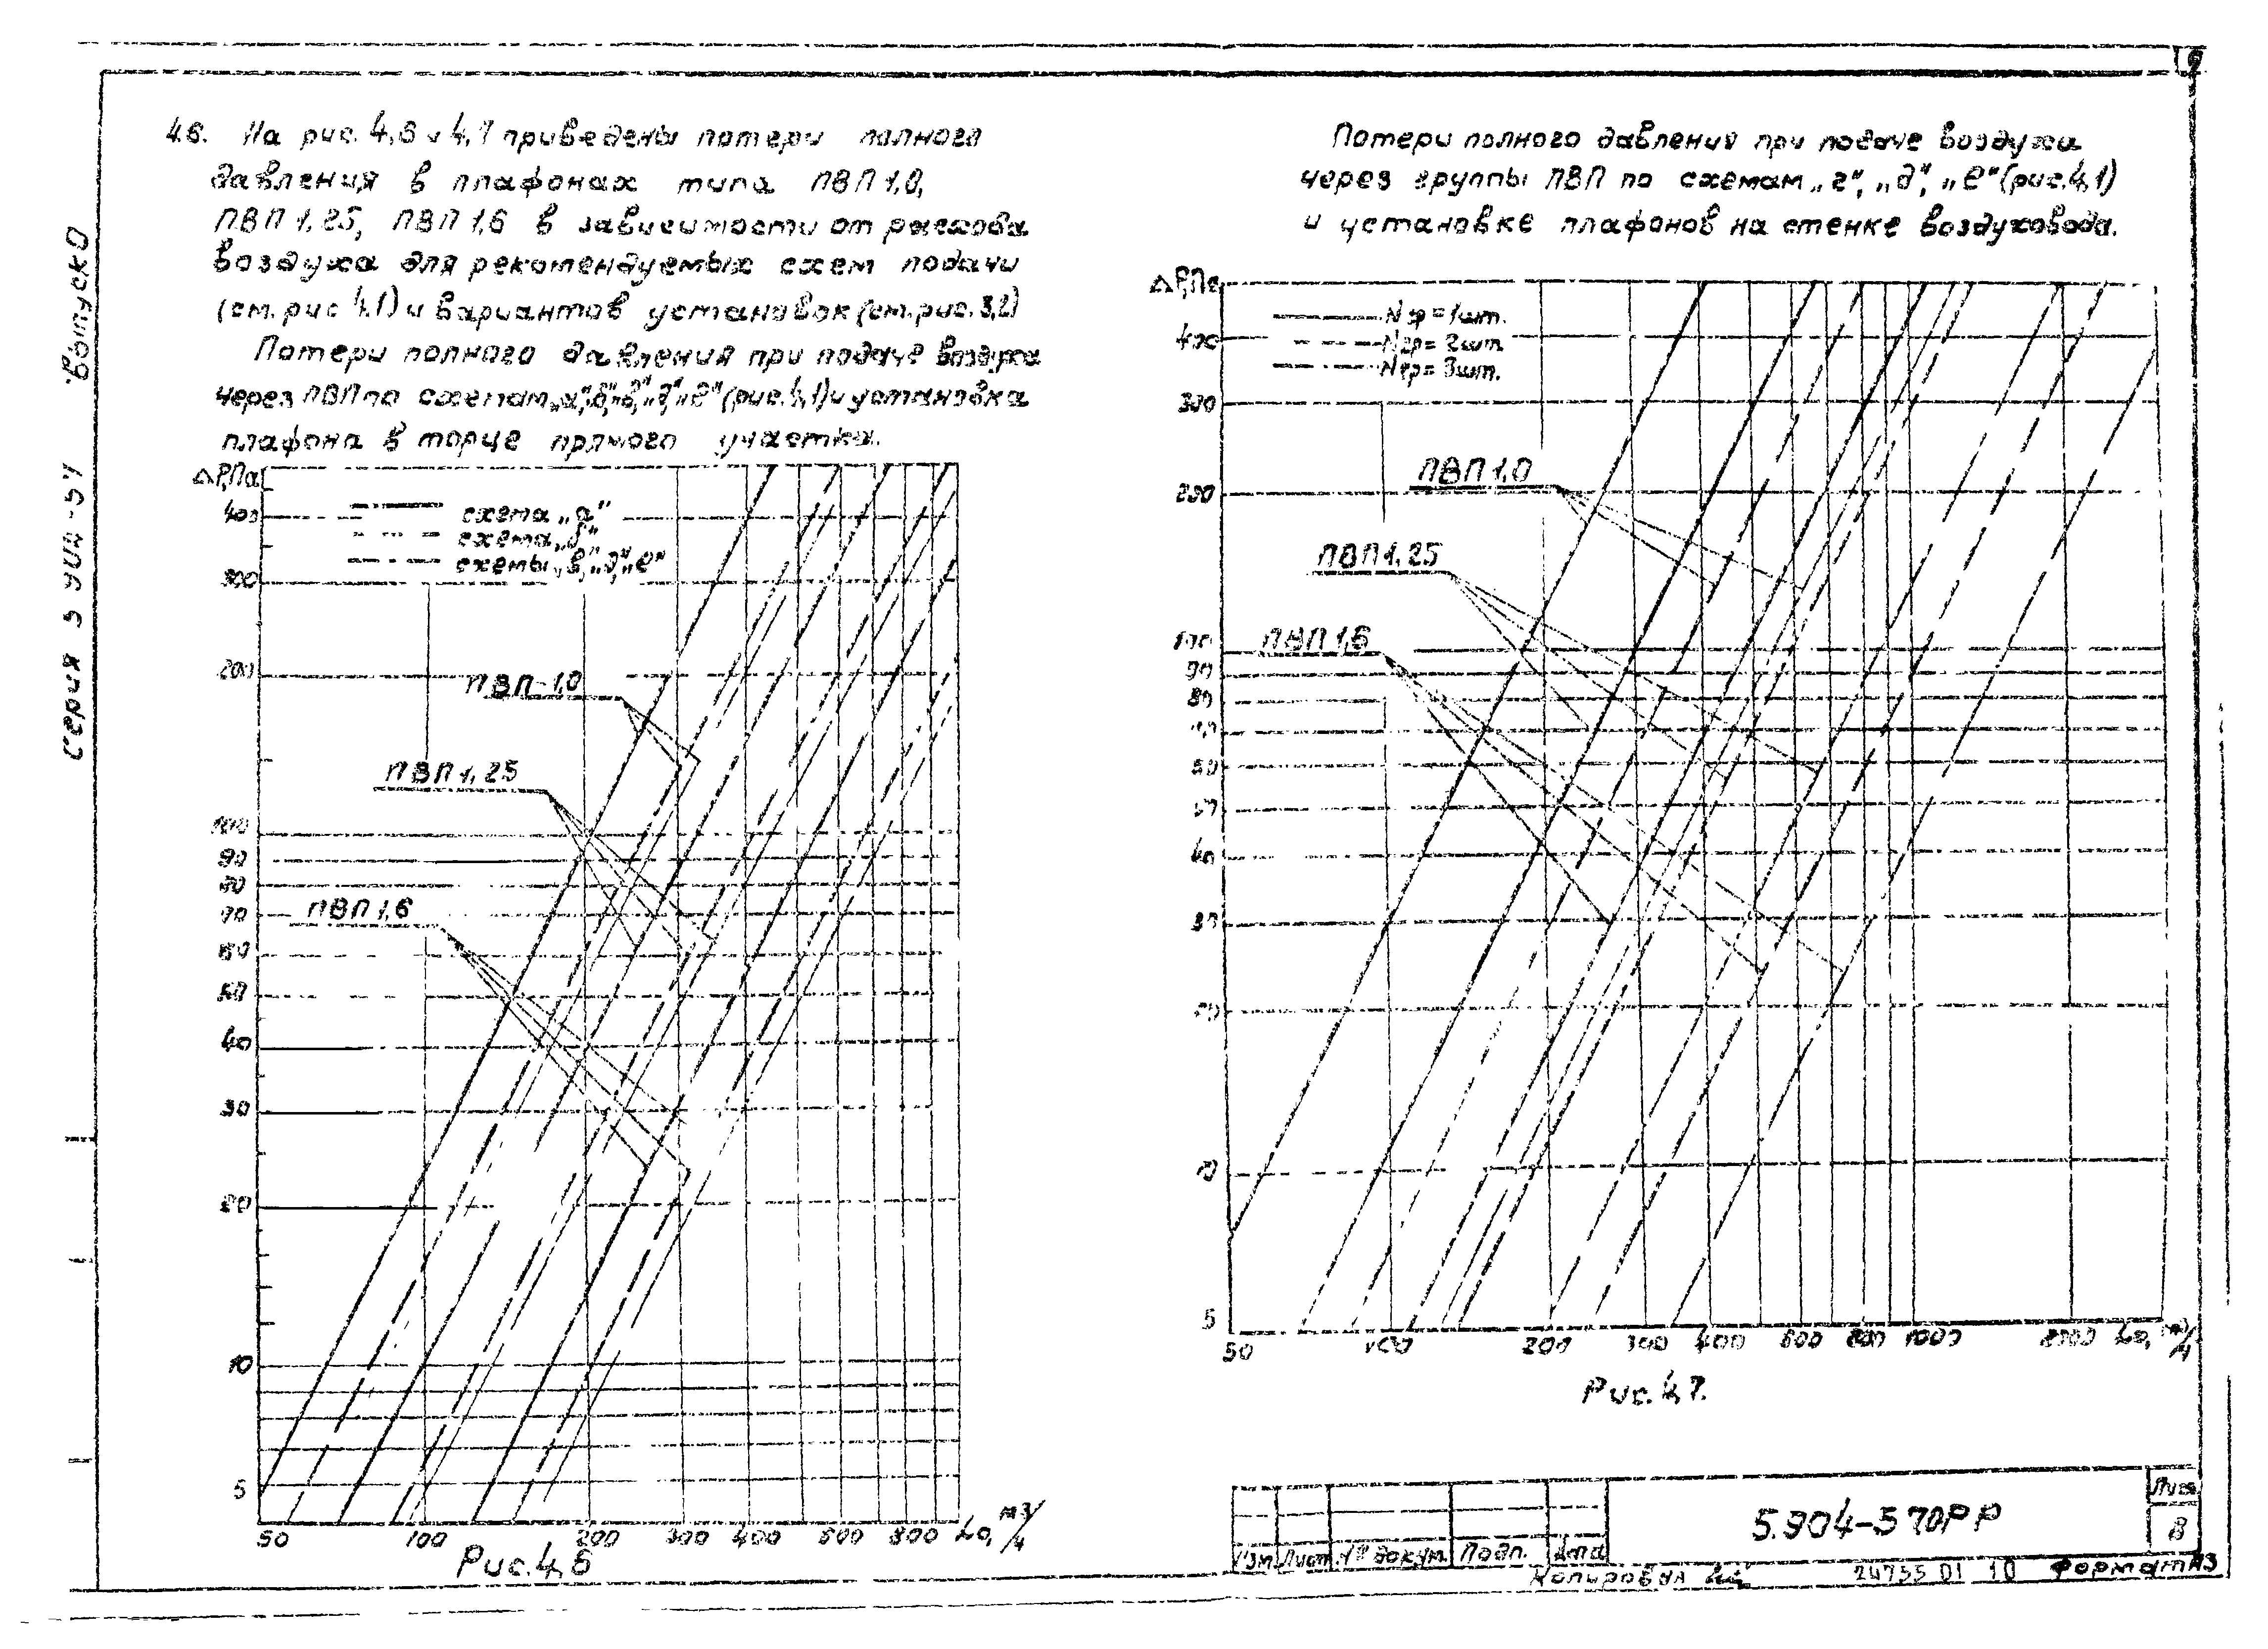 9
4.6. На рис. 4,6 и 4,7 приведены потери полного
давления в плафонах типа ПВП 1,0,
ПВП 1,25, ПВП 1,6 в зависимости от расхода
воздуха для рекомендуемых схем подачи
(см. рис 4.1) и вариантов установок (см. рис. 3,2)
Потери полного давления при подаче воздуха
через ПВП по схемам „а", „б", „в", „д", „е" (рис. 4,1) и установка
плафона в торце прямого участка.
ΔР,Па
схема „а"
схема „б"
схемы „в", „д", „е"
400
300
200
100
90
80
70
60
50
40
30
20
10
5
ПВП-1,0
ПВП 1,25
ПВП 1,6
50 100 200 300 400 600 800 Lо, м3/ч
Рис. 4,6
Потери полного давления при подаче воздуха
через группы ПВП по схемам „г", „д", „е" (рис. 4,1)
и установке плафонов на стенке воздуховода.
ΔР,Па
Nгр = 1шт.
Nгр = 2шт
Nгр = 3шт.
400
300
200
100
90
80
70
60
50
40
30
20
10
5
ПВП 1,0
ПВП 1,25
ПВП 1,6
50 100 200 300 400 600 800 1000 2000 Lо, м3/ч
Рис. 4,7.
Серия 5 904-57 Выпуск 0
5.904-57 0РР
Лист
8
Изм Лист № докум Подп. Дата
Копировал
24755 01 10 Формат А3